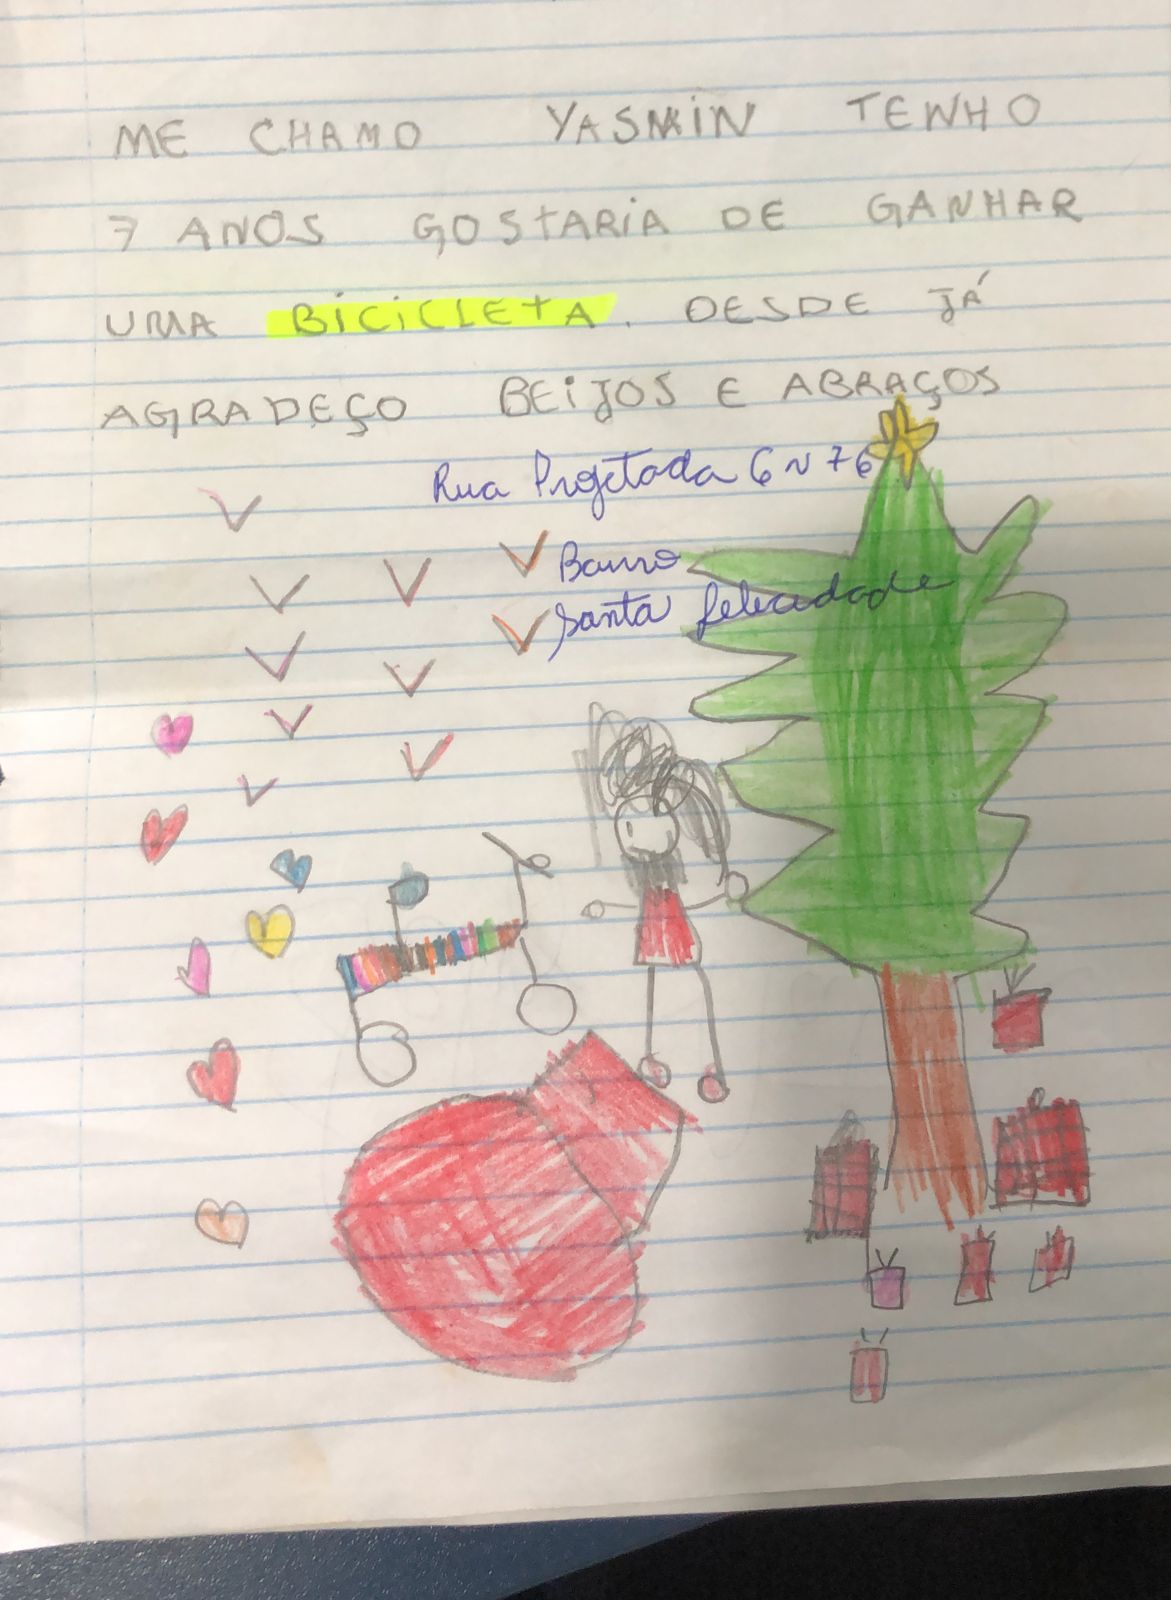 ME CHAMO YASMIN TENHO
7 ANOS GOSTARIA DE GANHAR
UMA BICICLETA. DESDE JÁ
AGRADEÇO BEIJOS E ABRAÇOS
Rua Projetada 6 N 76
Bairro
Santa felicidade